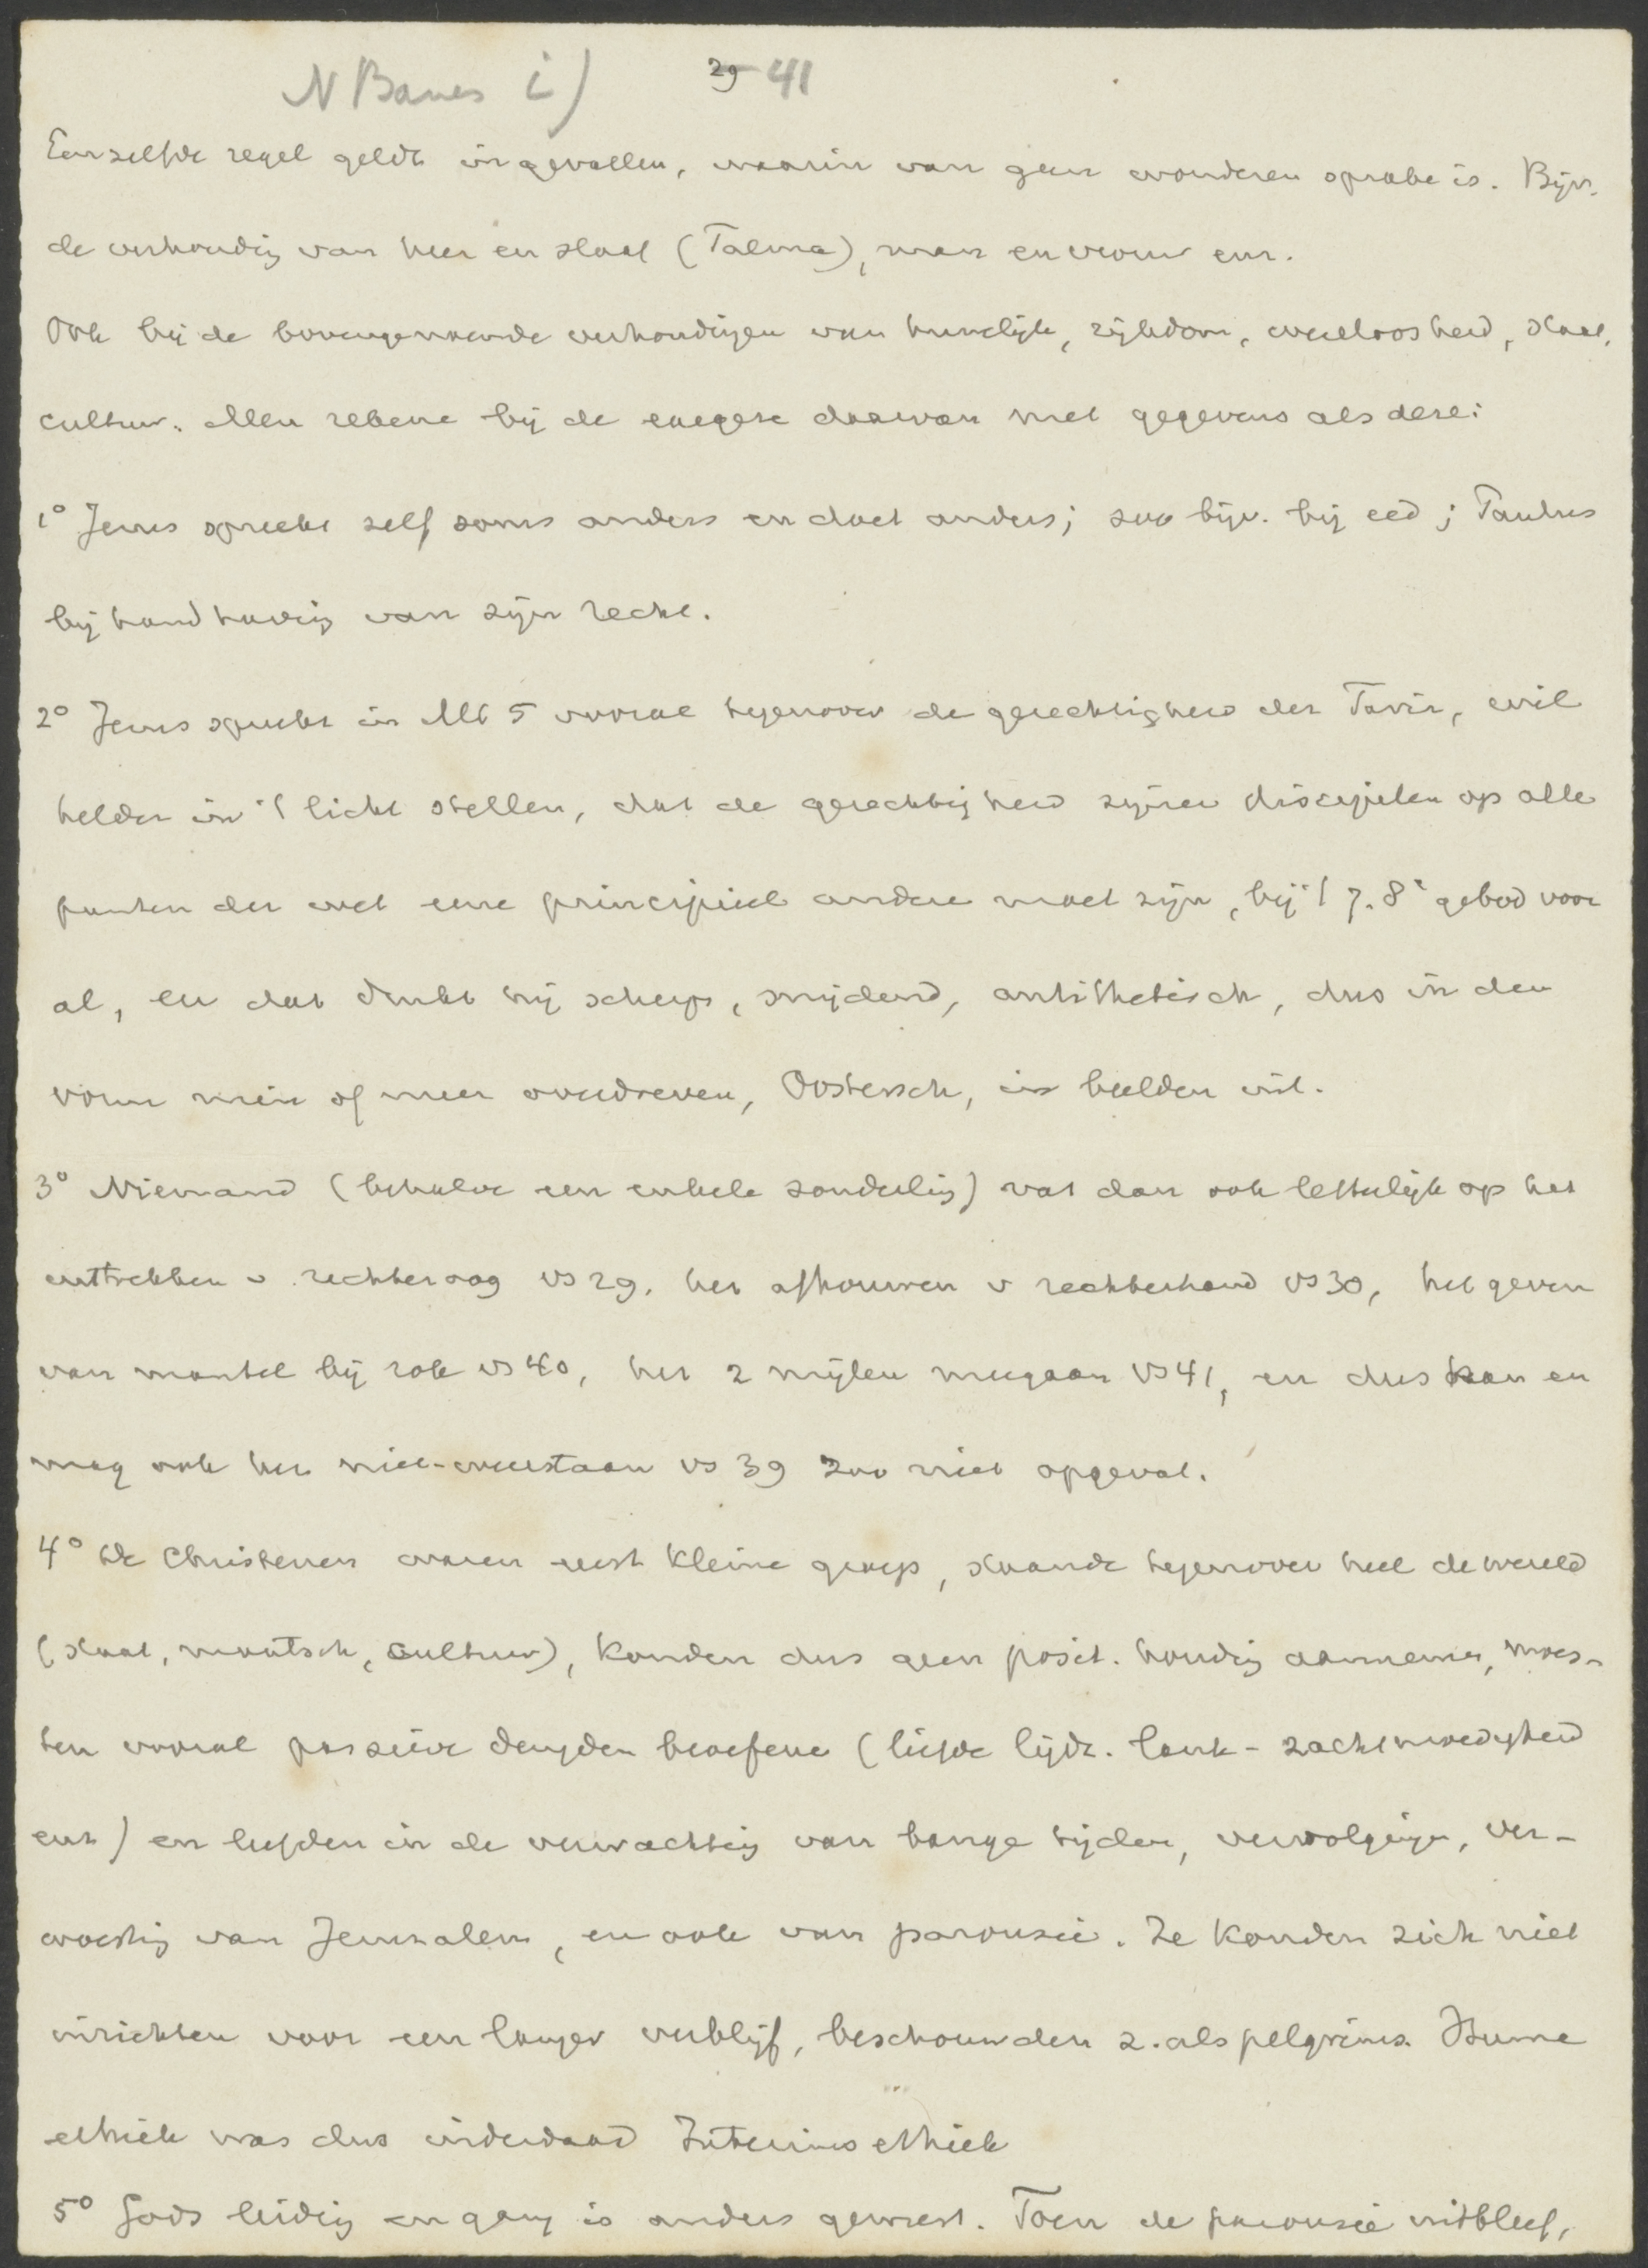 N Baues i) 29 41
Eenzelfde regel geldt in gevallen, waarin van geen wonderen sprake is. Bijv.
de verhoudig van heer en slaaf (Talma), man en vrouw enz.
Ook bij de bovengenoemde verhoudigen van huwelijk, rijkdom, weerloosheid, staat,
cultuur. Men rekene bij de exegese daarvan met gegevens als deze:
1° Jezus spreekt zelf soms anders en doet anders; zoo bijv. bij eed; Paulus
bij handhavig van zijn recht.
2° Jezus spreekt in Mt 5 vooral tegenover de gerechtigheid der Fariz, wil
helder in 't licht stellen, dat de gerechtigheid zijner discipelen op alle
punten der wet eene principieel andere moet zijn, bij 't 7. 8e gebod voor
al, en dat drukt hij scherp, snijdend, antithetisch, dus in den
vorm min of meer overdreven, Oostersch, in beelden uit.
3° Niemand (behalve een enkele zonderlig) vat dan ook letterlijk op het
uittrekken v. rechteroog vs 29, het afhouwen v rechterhand vs 30, het geven
van mantel bij rok vs 40, het 2 mijlen meegaan vs 41, en dus kan en
mag ook het niet-weerstaan vs 39 zoo niet opgevat.
4° De Christenen waren eerst kleine groep, staande tegenover heel de wereld
(staat, maatsch, cultuur), konden dus geen posit. houdig aannemen, moes-
ten vooral passieve deugden beoefene (liefde lijdz. lank - zachtmoedigheid
enz) en leefden in de verwachtig van bange tijden, vervolgigen, ver-
woestig van Jeruzalem, en ook van parousie. Ze konden zich niet
inrichten voor een langer verblijf, beschouwden z. als pelgrims. Hunne
ethiek was dus inderdaad Interimsethiek
5° Gods leidig en gang is anders geweest. Toen de parousie uitbleef,